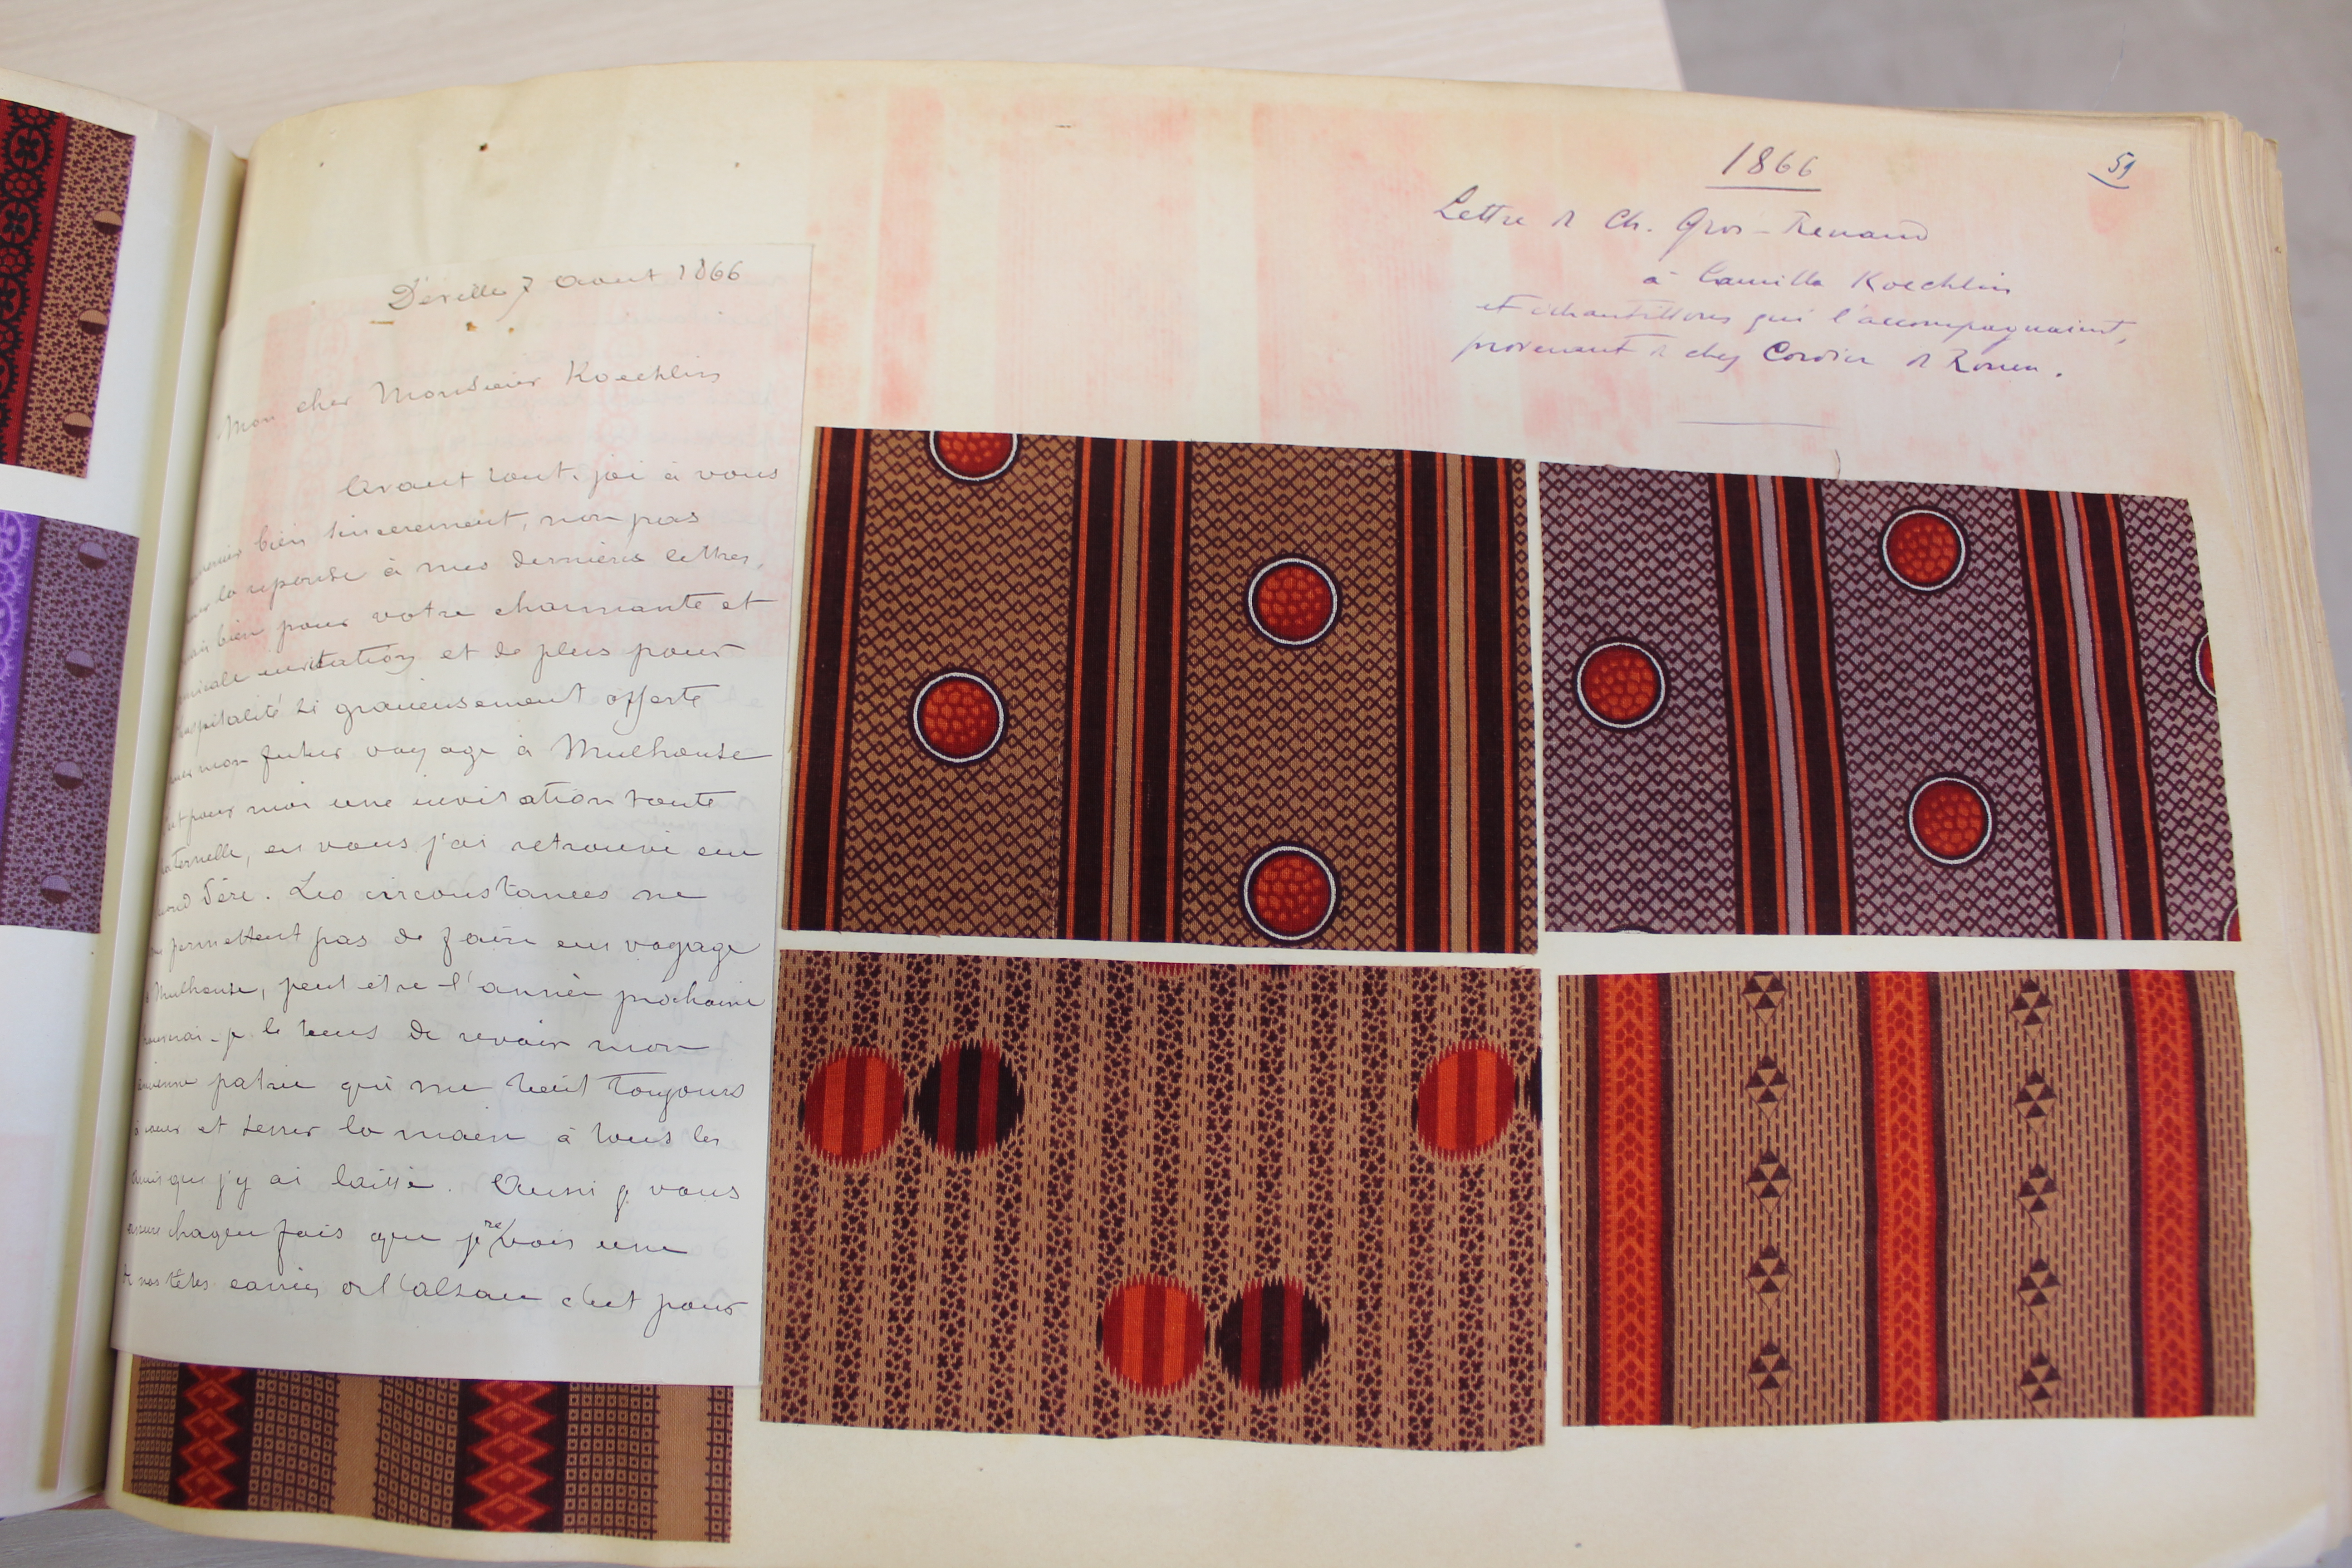 1866
59
Lettre de Ch. Gros-Renaud
à Camille Koechlin
et échantillons qui l'accompagnaient,
provenant de chez Cordier de Rouen.
Déville 7 Aout 1866
Mon cher Monsieur Koechlin
Avant tout, j'ai à vous
bien sincerement, non pas
la reponse à mes dernières lettres,
bien pour votre charmante et
amicale invitation et de plus pour
hospitalité si gracieusement offerte
mon futur voyage à Mulhouse
pour moi une invitation toute
en vous j'ai retrouvé un
Père. Les circonstances ne
permettent pas de faire un voyage
à Mulhouse, peut etre l'année prochaine
je le de revoir mon
ancienne patrie qui me tient toujours
à coeur et serrer la main à tous les
amis que j'y ai laissé. Aussi je vous
assure chaque fois que je revois une
de nos têtes carrées de l'alsace c'est pour